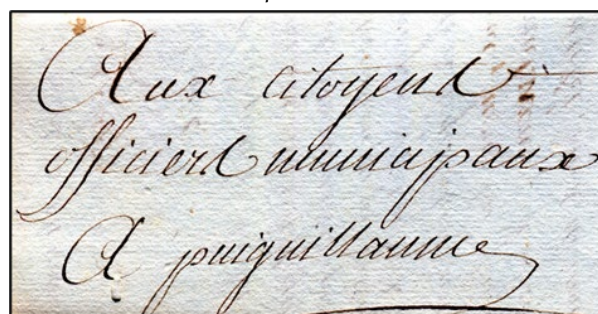 Aux citoyens
officiers municipaux
A puiguillaume